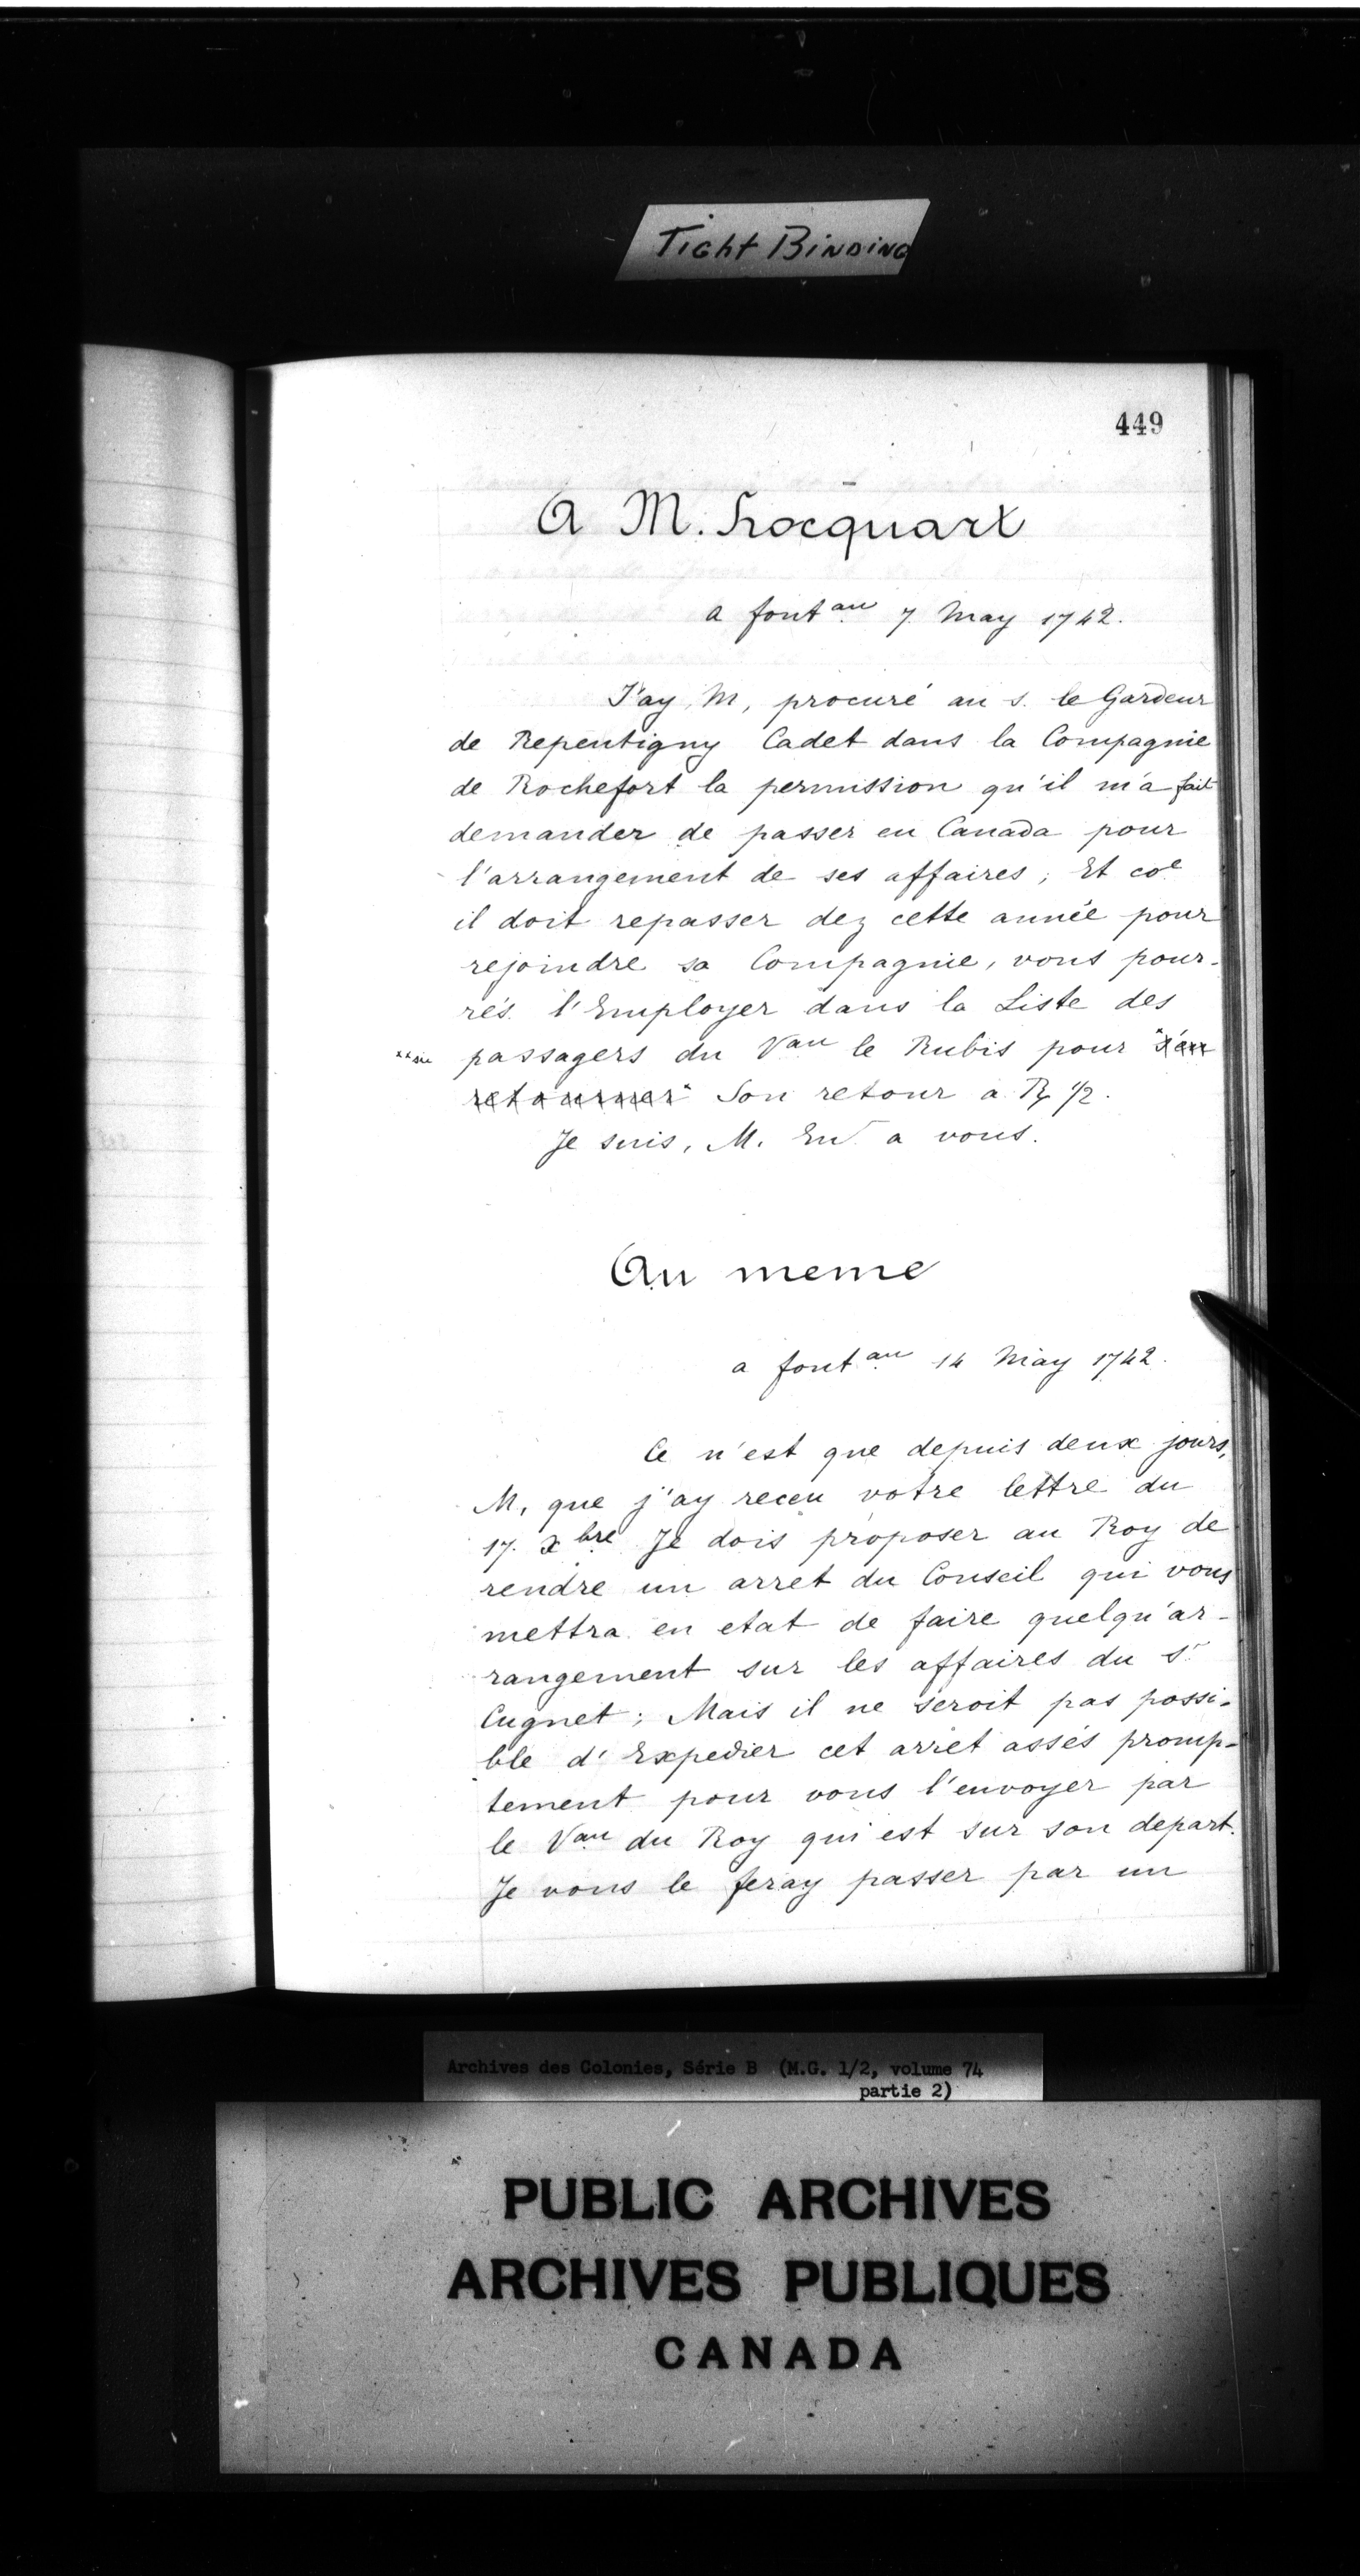 Tight Binding
449
A M. hocquart
a font au 7 May 1742.
J'ay, M, procuré au s. le Gardeur
de Repentigny Cadet dans la Compagnie
de Rochefort la permission qu'il m'a fait
demander de passer en Canada pour
l'arrangement de ses affaires; Et coe
il doit repasser dez cette année pour
rejoindre sa Compagnie, vous pour-
rés l'Employer dans la Liste des
passagers du Vau le Rubis pour s'en
retourner Son retour a Ron 1/2.
Je suis, M. Ent a vous.
Au meme
a font au 14 May 1742.
Ce n'est que depuis deux jours,
M, que j'ay receu votre lettre du
17. xbre Je dois proposer au Roy de
rendre un arret du Conseil qui vous
mettra en etat de faire quelqu'ar-
rangement sur les affaires du Sr
Cugnet; Mais il ne seroit pas possi-
ble d'Expedier cet arret assés promp-
tement pour vous l'envoyer par
le Vau du Roy qui est sur son depart.
Je vous le feray passer par un
Archives des Colonies, Série B (M.G. 1/2, volume 74
partie 2)
PUBLIC ARCHIVES
ARCHIVES PUBLIQUES
CANADA